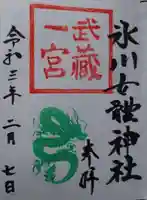 氷川女體神社
奉拝
武蔵
一宮
令和三年二月
七日